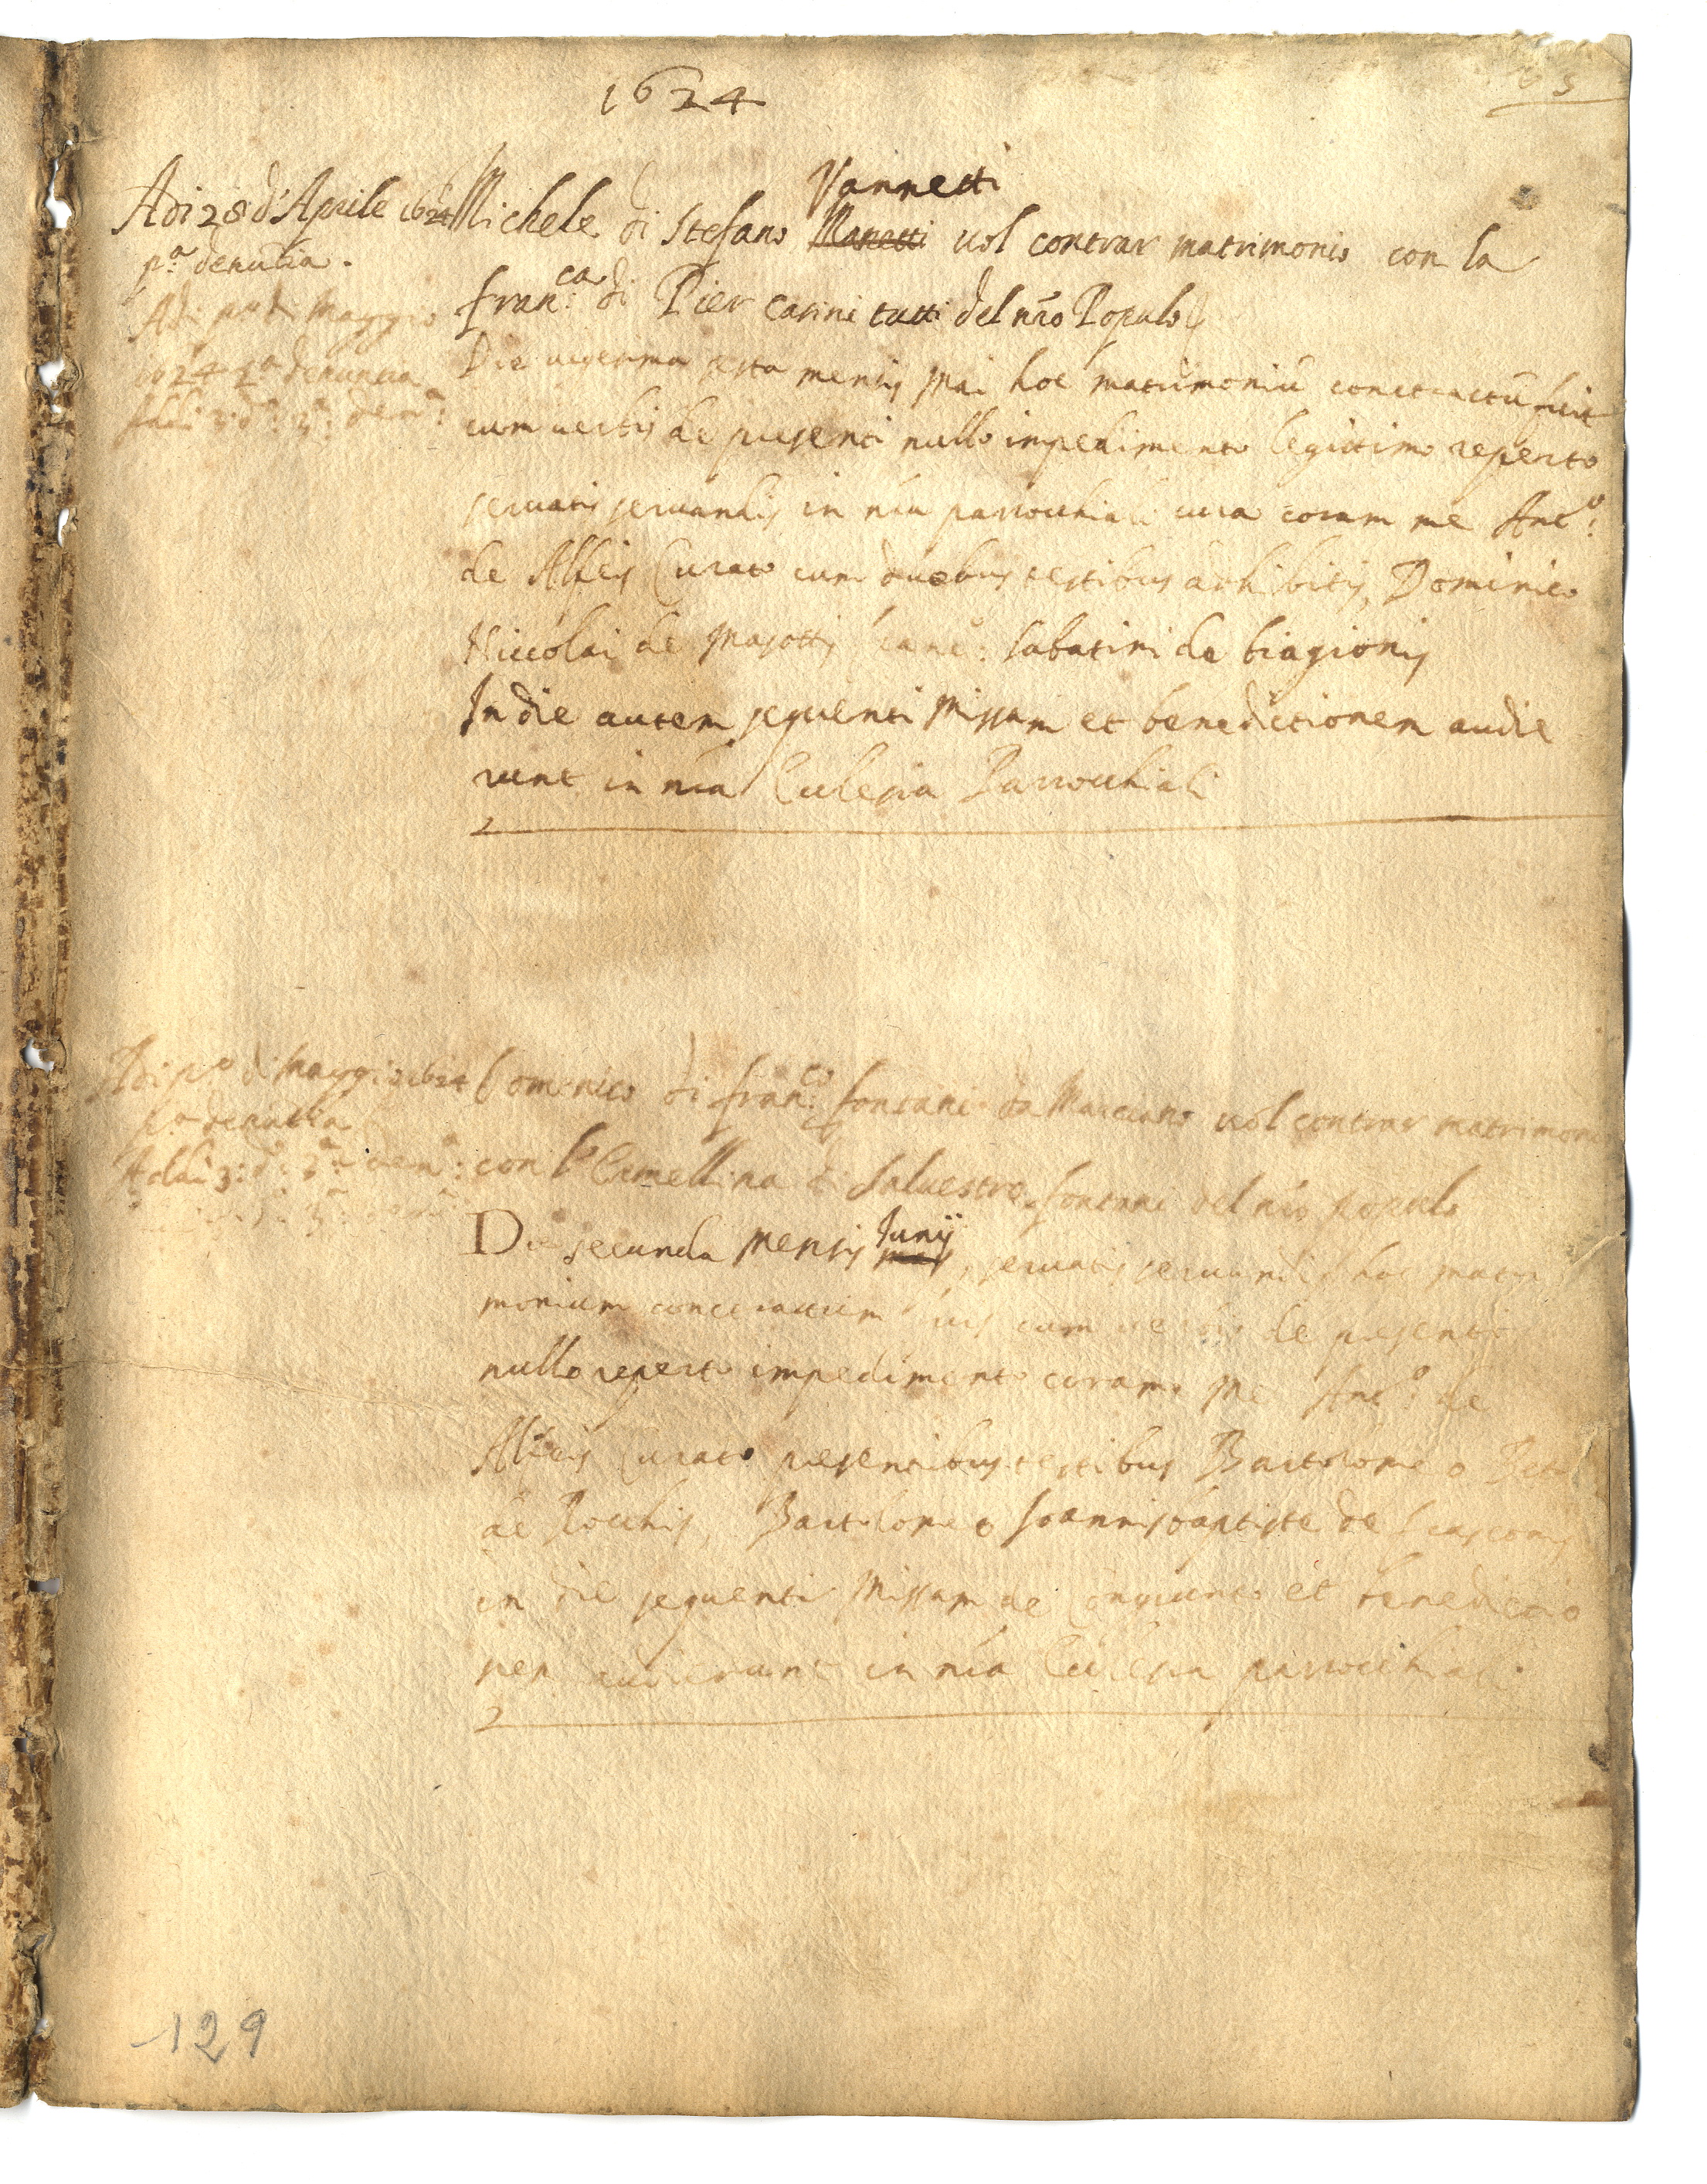 1624
Adi 28 d'Aprile 1624
pa denūtia.
Adi po di Maggio
1624 2a denuntia
Adi 3: do: 3a: denā:
Vannetti
Michele di Stefano Manetti vol contrar matrimonio con la
fran:ca di Pier Carini tutti del nr̃o Popolo
Die vigesima sexta mensis Mai hoc matrimoniū conctractū fuit
cum verbis de presenti nullo impedimento legittimo reperto
servatis servandis in nr̃a parrochiali cura coram me Anto:
de Curato cum duobus testibus adhibitis, Dominico
Niccolai de Masottis sabatini de biagionis
In die autem sequenti Missam et benedictionem audie
runt in nr̃a Ecclesia Parrochiali
Adi po di Maggio 1624
pa denuntia
Adi 3: do: 2a: denā:
Domenico di fran:co fontani da Marciano vol contrar matrimoni
con la Camellina di Salvestro fontani del nr̃o popolo
Die secunda Mensis Junij, servatis servandis hoc matri
monium conctractum fuit cum verbis de presenti
nullo reperto impedimento coram Me Anto: de
Curato presentibus testibus Bartolomeo
de Rocchis, Bartolomeo Joannisbaptiste de
in die sequenti Missam de Congiunto et benedictio
nem audierunt in nr̃a Ecclesia parrochiali.
129